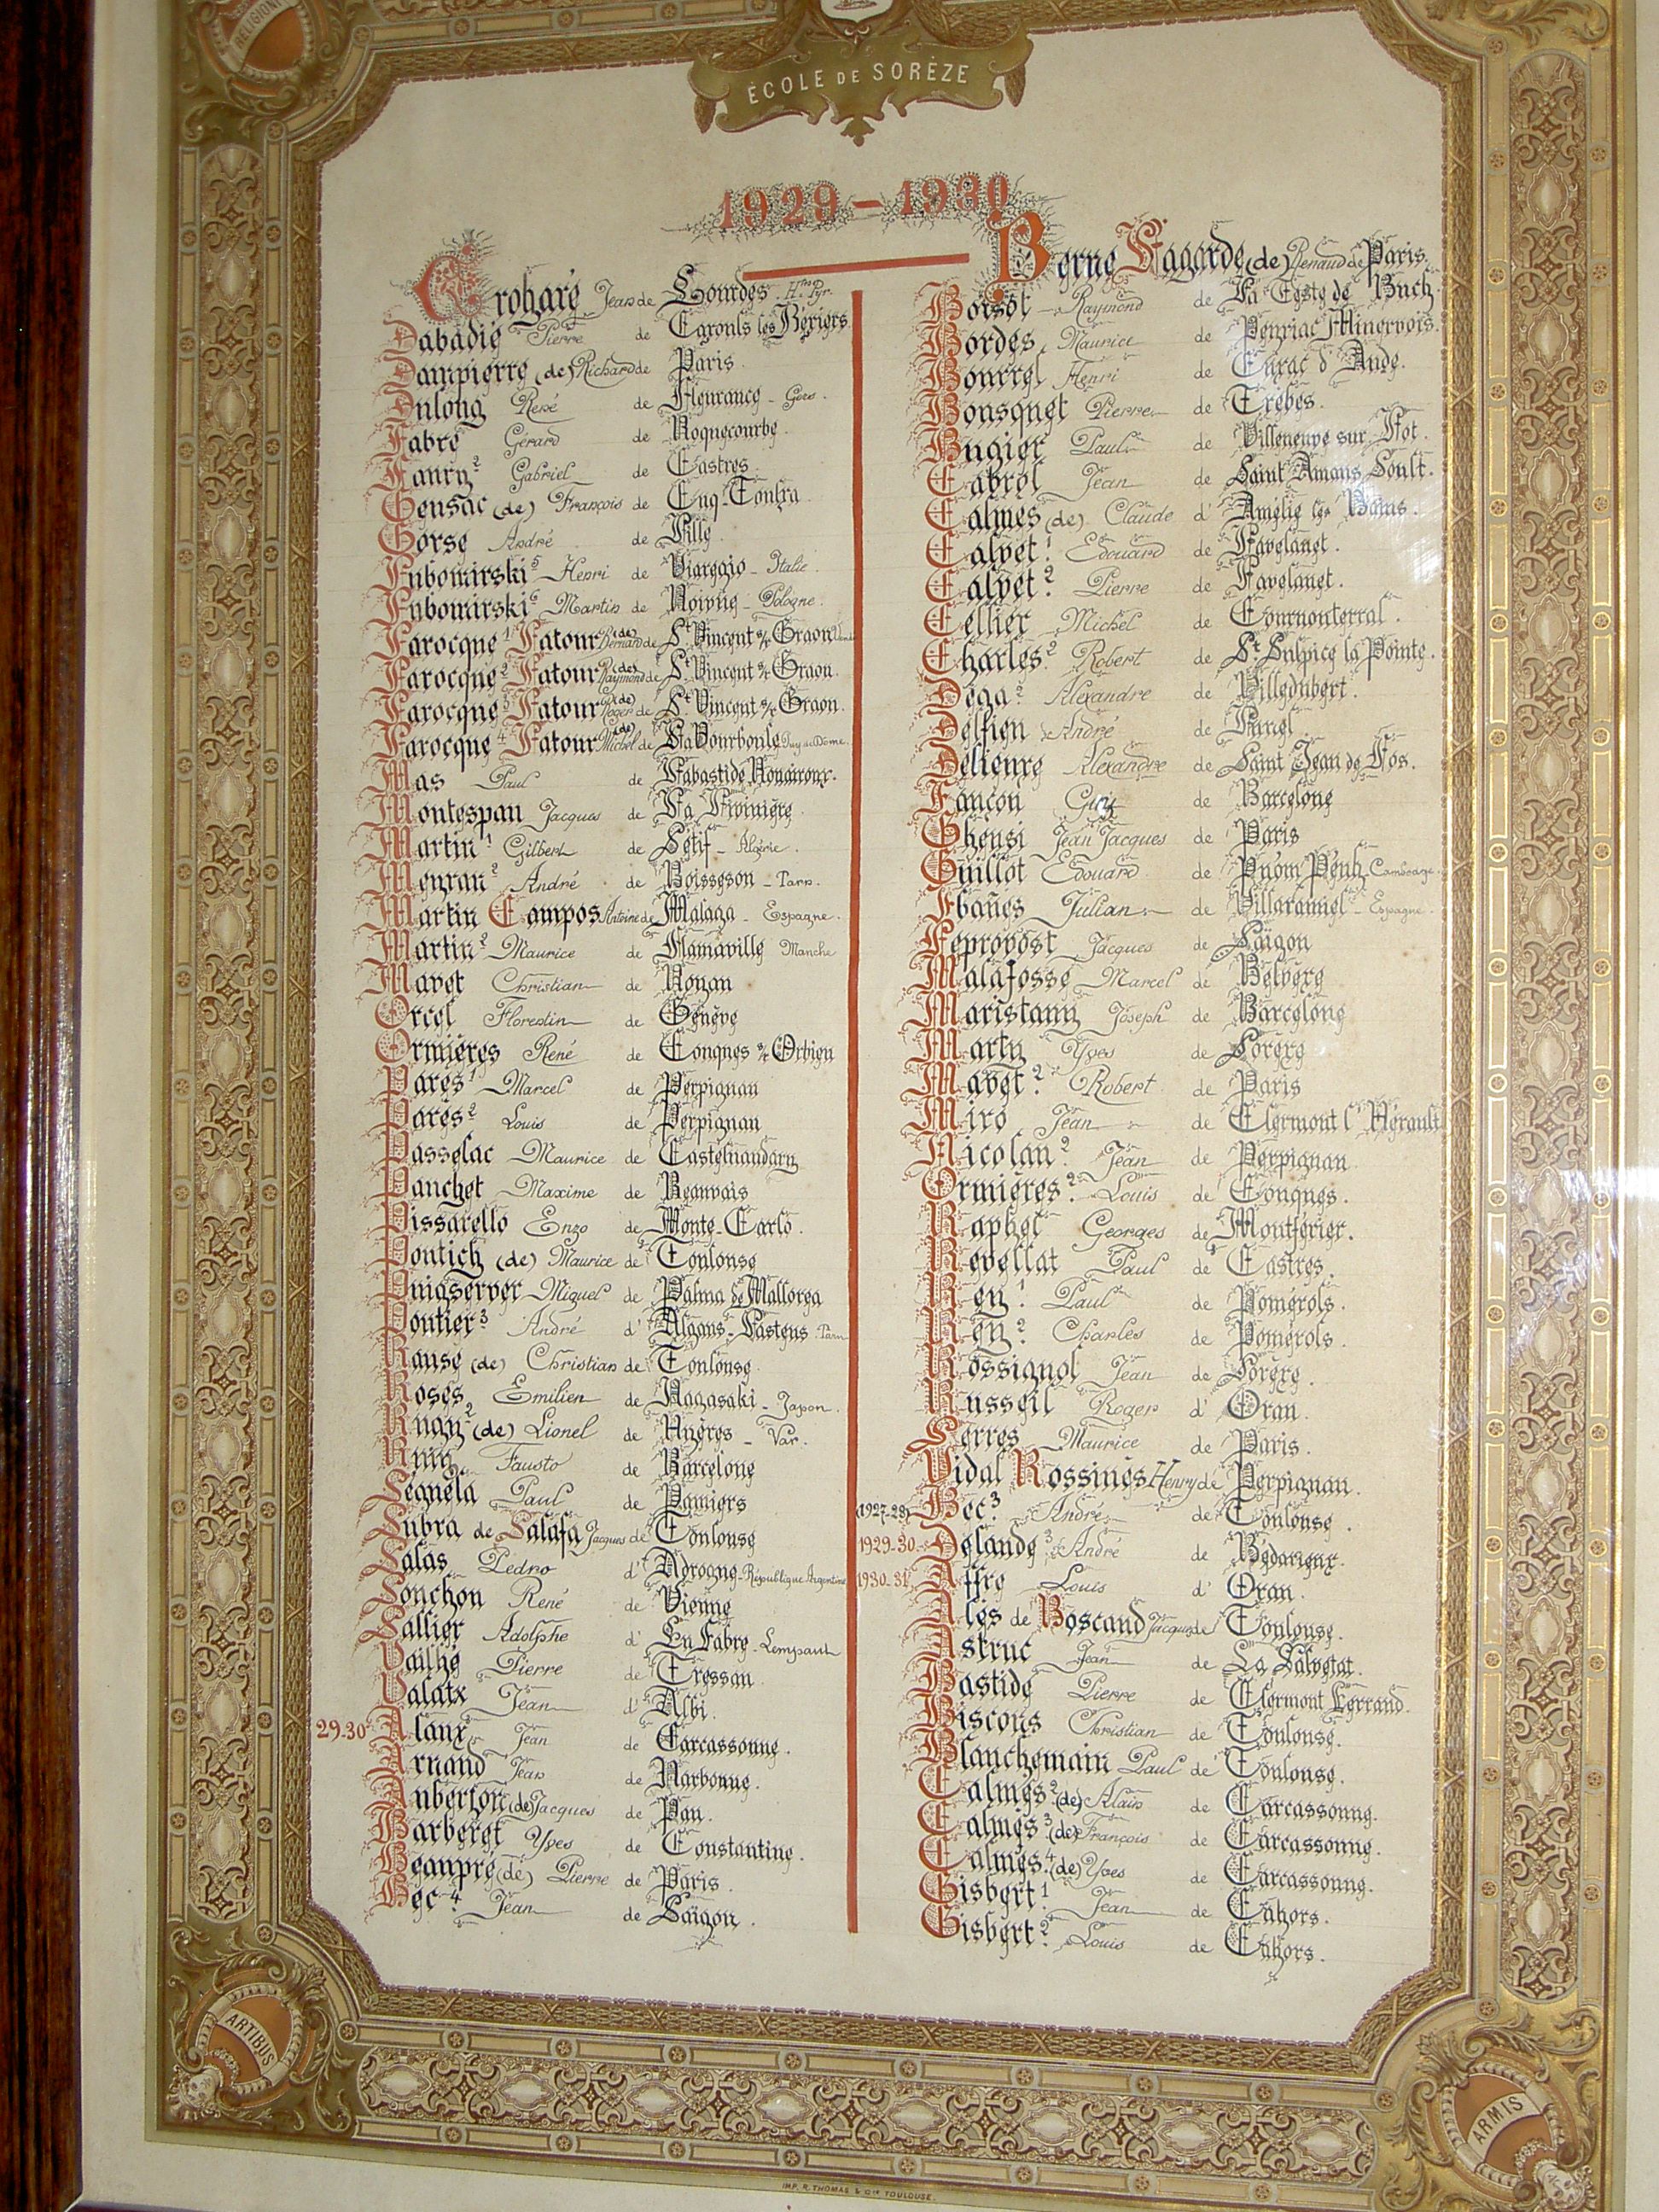 RELIGIONI
ÉCOLE DE SORÈZE
1929-1930
Croharé Jean de Lourdes Htes Pyr.
Dabadie Pierre de Béziers
Dampierre (de) Richard de Paris.
Dulong René de Fleurance - Gers.
Fabre Gérard de Roquecourbe.
Faury 2 Gabriel de Castres.
Gensac (de) François de Cuq-Toulza
Gorse André de Lille.
Lubomirski 5 Henri de Viareggio - Italie.
Lubomirski 6 Martin de - Pologne.
Larocque 1 Latour (de) Bernard de St Vincent s/r Graon
Larocque 2 Latour (de) Raymond de St Vincent s/r Graon.
Larocque 3 Latour (de) Roger de St Vincent s/r Graon.
Larocque 4 Latour (de) Michel de La Bourboule Puy de Dôme.
Mas Paul de Labastide Rouairoux.
Montespan Jacques de La Livinière.
Martin 1 Gilbert de Sétif - Algérie.
Meyran 2 André de Boissezon - Tarn.
Martin Campos Antoine de Malaga - Espagne.
Martin 2 Maurice de Flamaville Manche
Mavet Christian de Royan
Orcel Florentin de Genève
Ormières René de Conques s/r Orbieu
Parès 1 Marcel de Perpignan
Parès 2 Louis de Perpignan
Passelac Maurice de Castelnaudary
Pauchet Maxime de Beauvais
Pissarello Enzo de Monte-Carlo.
Pontich (de) Maurice de Toulouse
Puigserver Miguel de Palma de Mallorca
Pontier 3 André d'Algans-Lastens. Tarn
Rause (de) Christian de Toulouse.
Roses Emilien de Nagasaki - Japon.
Ruay 2 (de) Lionel de Hyères - Var.
Fausto de Barcelone
Séguéla Paul de Pamiers
Subra de Salafa Jacques de Toulouse
Salas Pedro d'Adrogue - République Argentine
Souchon René de Vienne
Sallier Adolphe d'En Fabre - Lempaut
Vailhé Pierre de Tressan.
Valatx Jean d'Albi.
29.30 Alaux Jean de Carcassonne.
Arnaud Jean de Narbonne.
Auberjon (de) Jacques de Pau.
Barberet Yves de Constantine.
Beaupré (de) Pierre de Paris.
Bec 4 Jean de Saïgon.
Berne Lagarde (de) Renaud de Paris.
Boisot Raymond de La Teste de Buch.
Bordes Maurice de Peyriac Minervois.
Bourrel Henri de Cuxac d'Aude.
Bousquet Pierre de Trèbes.
Bugier Paul de Villeneuve sur Lot.
Cabrol Jean de Saint Amans Soult.
Calmès (de) Claude d'Amélie les Bains.
Calvet 1 Edouard de Lavelanet.
Calvet 2 Pierre de Lavelanet.
Cellier Michel de Cournonterral.
Charles 2 Robert de St Sulpice la Pointe.
Dega 2 Alexandre de Villedubert.
Delfieu André de Lunel
Delieure Alexandre de Saint Jean de Fos.
Lançon Guy de Barcelone
Gheusi Jean Jacques de Paris
Guillot Edouard de Pnom Penh Cambodge.
Ibañes Julian de Villaramiel - Espagne.
Leprovost Jacques de Saïgon
Malafosse Marcel de Belvèze
Maristany Joseph de Barcelone
Marty Yves de Sorèze
Mavet 2 Robert de Paris
Miro Jean de Clermont l'Hérault
Nicolau 2 Jean de Perpignan
Ormières 2 Louis de Conques.
Raphel Georges de Montferier.
Revellat Paul de Castres.
Rey 1 Paul de Pomérols.
Rey 2 Charles de Pomérols.
Rossignol Jean de Sorèze.
Russeil Roger d'Oran.
Serres Maurice de Paris.
Vidal Rossinès Henry de Perpignan.
(1927-28) Bec 3 André de Toulouse.
1929-30 Delaude 3 André de Bédarieux.
1930-31 Affre Louis d'Oran.
Alès de Boscaud Jacques de Toulouse.
Astruc Jean de La Salvetat.
Bastide Pierre de Clermont Ferrand.
Biscons Christian de Toulouse.
Blanchemain Paul de Toulouse.
Calmès 2 (de) Alain de Carcassonne.
Calmès 3 (de) François de Carcassonne.
Calmès 4 (de) Yves de Carcassonne.
Gisbert 1 Jean de Cahors.
Gisbert 2 Louis de Cahors.
ARTIBUS
ARMIS
IMP. R. THOMAS & Cie TOULOUSE.